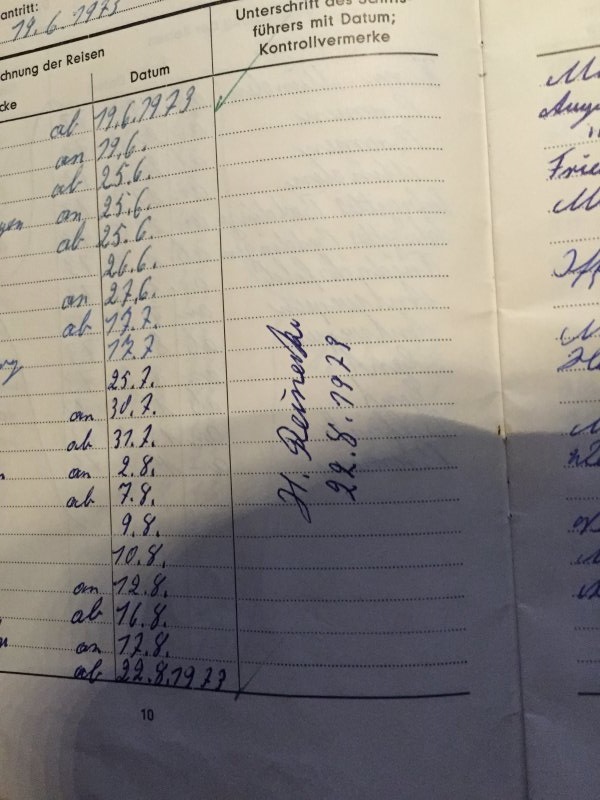 antritt:
19.6.1973
Unterschrift des Schiffs-
führers mit Datum;
Kontrollvermerke
chnung der Reisen
cke
Datum
ab 19.6.1973
an 19.6.
ab 25.6.
gen an 25.6.
ab 25.6.
26.6.
an 27.6.
ab 17.7.
17.7
25.7.
an 30.7.
ab 31.7.
an 2.8.
ab 7.8.
9.8.
10.8.
an 12.8.
ab 16.8.
an 17.8.
ab 22.8.1973
H.
22.8.1973
10